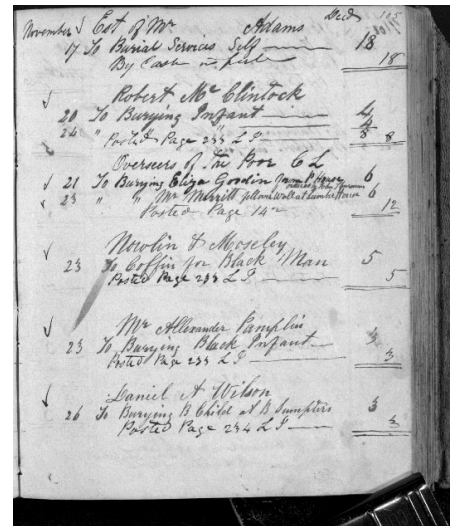 November Est of Mr Adams Decd
17 To Burial Services Self 18
By Cash in full 18
Robert McClintock
20 To Burying Infant 4
24 " " " 4
Posted Page 233 L I 8 8
Overseers of The Poor C L
21 To Burying Eliza Goodin from P House 6
23 " " Mr Merrill 6
Posted Page 142 12
Nowlin & Moseley
23 To Coffin for Black Man 5
Posted Page 233 L I 5
Mr Allexander Pamplin
23 To Burying Black Infant 3
Posted Page 233 L I 3
Daniel A Wilson
26 To Burying B Child at B Sumpters 3
Posted Page 234 L I 3